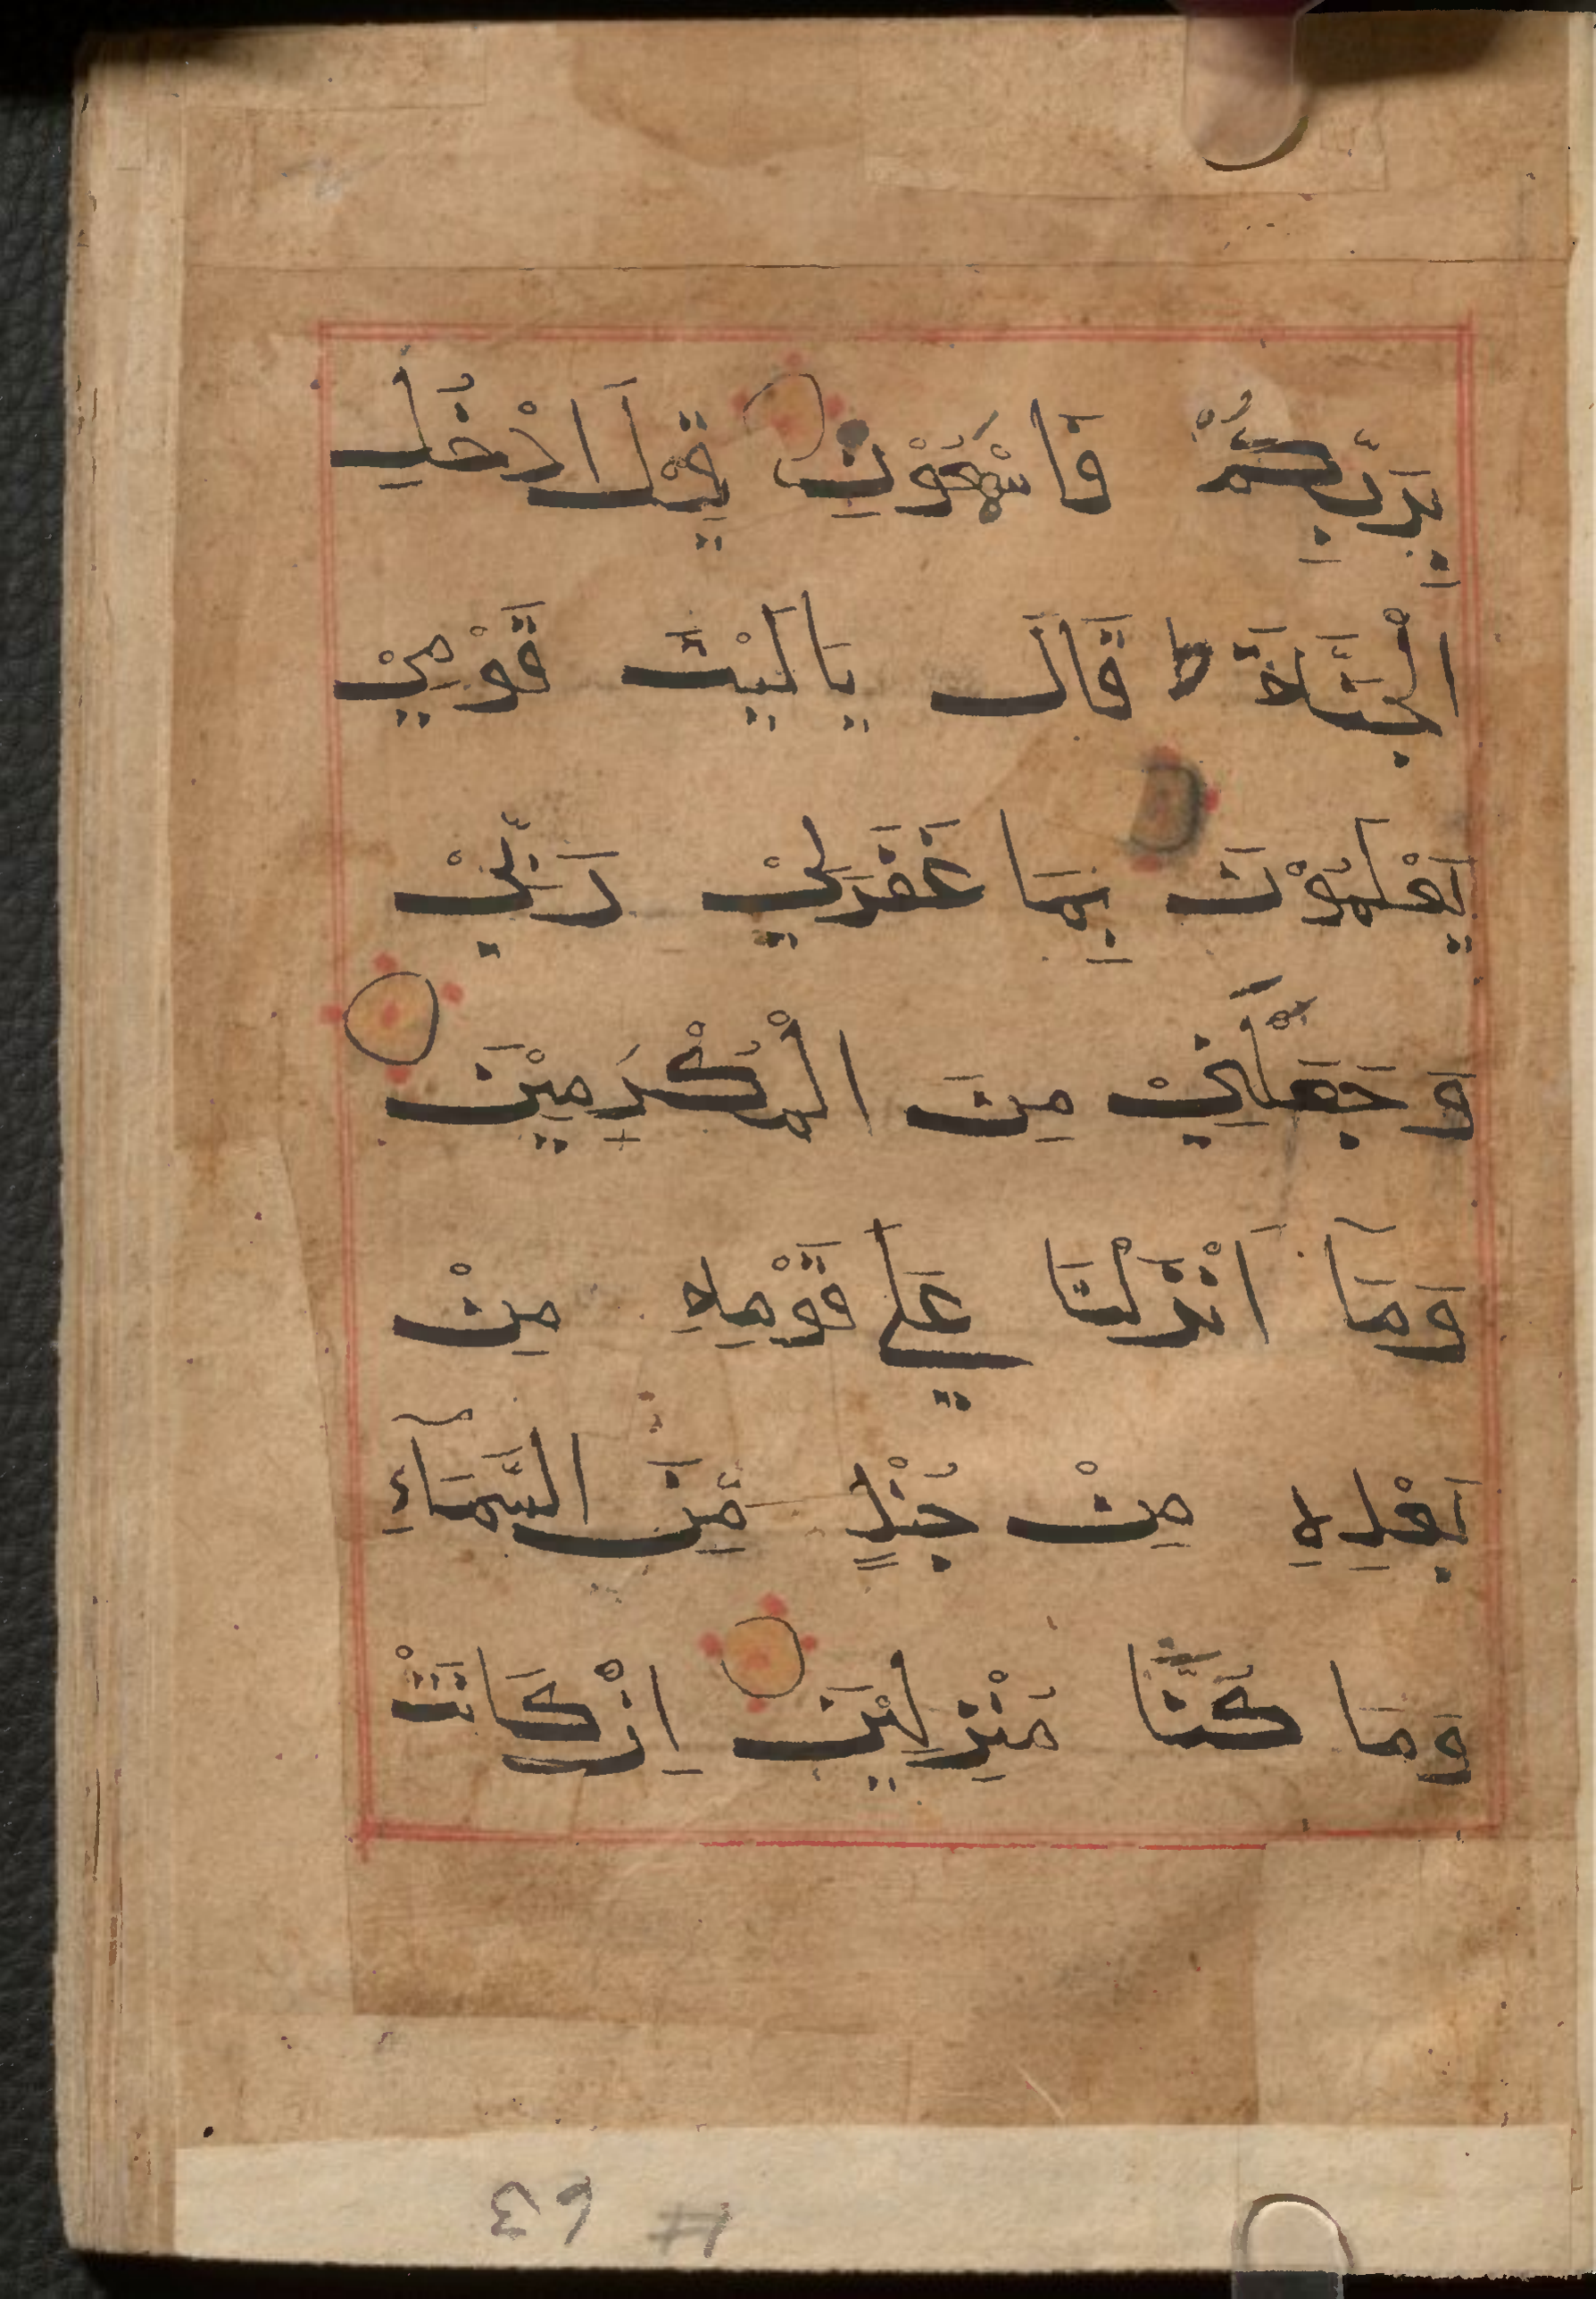 بِرَبِّكُمْ فَاسْمَعُوْنِ قِيْلَ ادْخُلِ
الْجَنَّةَ ط قَالَ يَالَيْتَ قَوْمِيْ
يَعْلَمُوْنَ بِمَا غَفَرَلِيْ رَبِّيْ
وَجَعَلَنِيْ مِنَ الْمُكْرَمِيْنَ
وَمَآ اَنْزَلْنَا عَلٰي قَوْمِهِ مِنْ
بَعْدِهِ مِنْ جُنْدٍ مِّنَ السَّمَآءِ
وَمَا كُنَّا مُنْزِلِيْنَ اِنْ كَانَتْ
# 63